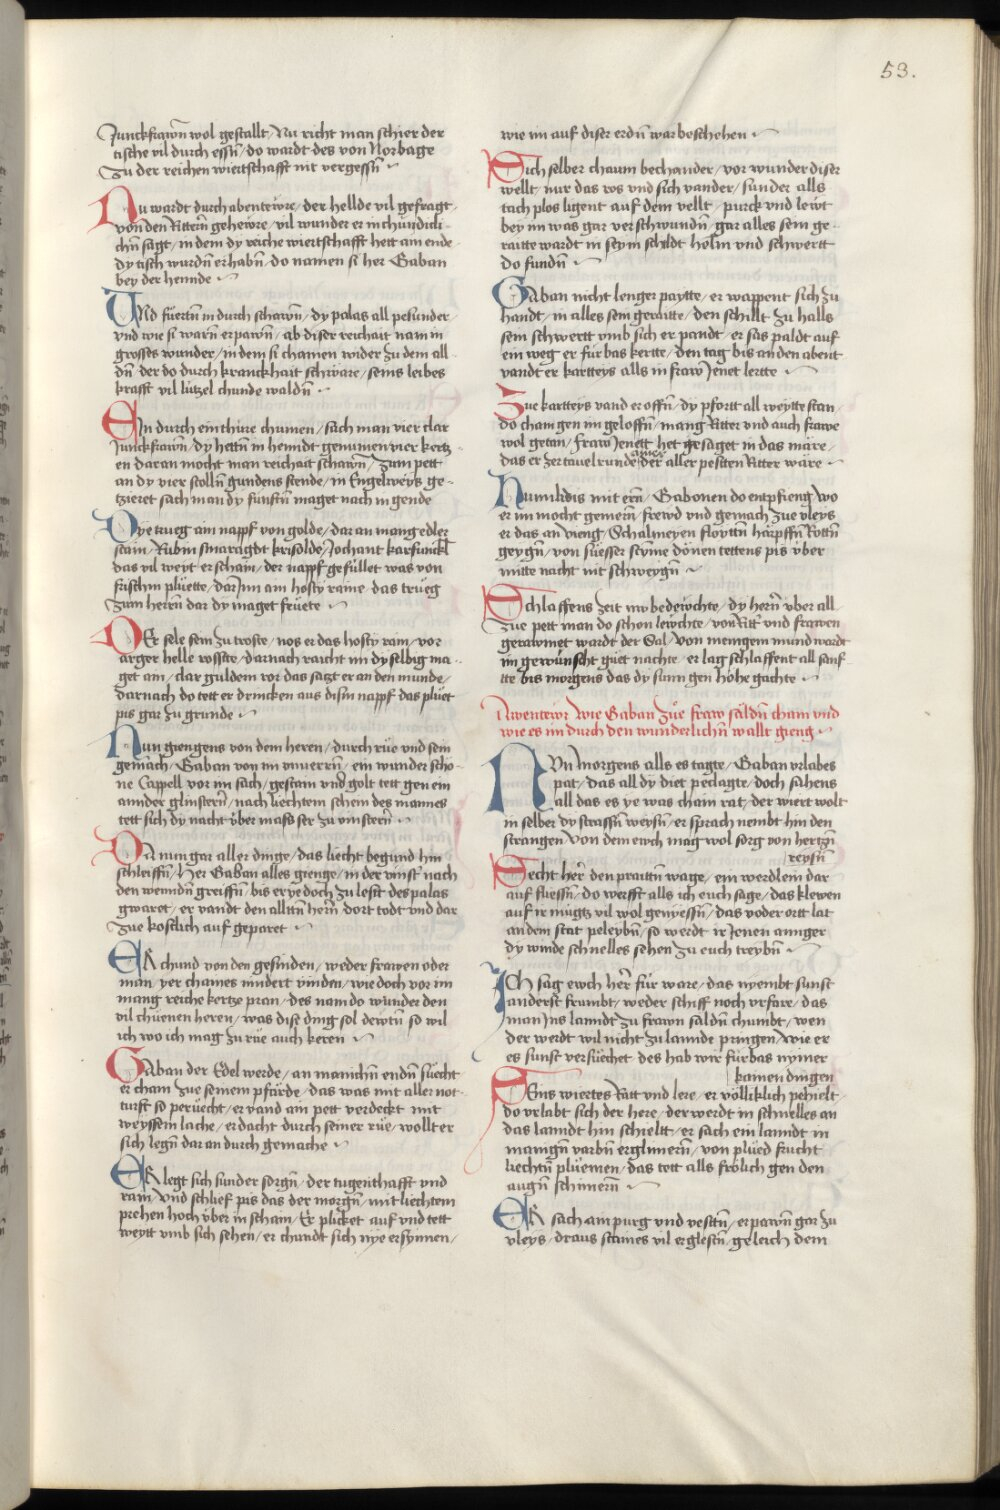 53.
Junckfrawn̄ wol gestallt / Nu richt man schier der
tische vil durch essn̄ / do wardt des von Norbage
Zu der reichen wiertschafft nit vergessn̄
Nu wardt durch abentewre / der hellde vil gefragt
von den Rittern̄ gehewre / vil wunder er in chundicli-
chn̄ sagt / in dem dy reiche wiertschafft hett am ende
dy tisch wurdn̄ erhabn̄ / do namen si her Gaban
bey der hennde
Und fuertn̄ in durch schawn̄ / dy palas all pesunder
vnd wie si warn̄ erpawn̄ / ab diser reichait nam in
grosses wunder / in dem si chamen wider zu dem all
dn̄ / der do durch kranckhait schware / seins leibes
krafft vil lutzel chunde waldn̄
Ein durch ein thüre chumen / sach man vier clar
Junckfrawn̄ / dy hettn̄ in henndt genumen vier kertz
en daran mocht man reichait schawn̄ / Zum pett
an dy vier stolln̄ gundens stende / in Engelweys ge-
tzieret sach man dy funftn̄ maget nach in gende
Dye trueg am napff von golde / dar an mang edler
stain / Rubin smaragdt krisolde / Jochant karfunckl
das vil weyt erschain / der napff gefüllet was von
frischm pluette / darInn am hosty raine das trüeg
Zum herrn̄ dar dy maget fruete
Der sele sein zu troste / nos er das hosty rain / vor
arger helle rosste / darnach raicht im dy selbig ma-
get am / clar guldem ror das satzt er an den munde /
darnach do tett er drincken aus disn̄ napff das pluet
pis gar zu grunde
Nun giengens von dem heren / durch rüe vnd sein
gemach / Gaban von im vnuerrn̄ / ein wunder scho-
ne Cappell vor im sach / gestain vnd golt tett gen ein
annder glinstern̄ / nach liechtem schein des mannes
tett sich dy nacht vber mass ser zu vinstern̄
Da nun gar aller dinge / das liecht begund hin
schleiffn̄ / Her Gaban alles gienge / in der vinst nach
den wenndn̄ greiffn̄ / bis er ye doch zu lesst des palas
gwaret / er vandt den alltn̄ hern̄ dort todt vnd dar
Zue kostlich auf geparet
Er chund von den gesinden / weder frawen oder
man / yer chaines nindert vinden / wie doch vor im
mang reiche kertze pran / des nam do wunder den
vil chüenen heren / was dise ding sol dewtn̄ so wil
ich wo ich mag zu rüe auch keren
Gaban der Edel werde / an manichn̄ endn̄ suecht
er cham zue seinem pfärde / das was mit aller not-
turft so peruecht / er vand am pett verdeckt mit
weyssem lache / er dacht durch seiner rüe / wollt er
sich legn̄ dar an durch gemache
Er legt sich sunder sorgn̄ / der tugenthafft vnd
rain / vnd schlief pis das der morgn̄ / mit liechtem
prehen hoch vber in schain / Er plicket auf vnd tett
weytt vmb sich sehen / er chundt sich nye ersynnen /
wie im auf diser erdn̄ war beschehen
Sich selber chaum bechander / vor wunder diser
wellt / nur das ros vnd sich vander / sunder alls
tach plos ligent auf dem vellt / purck vnd lewt
bey im was gar verschwundn̄ / gar alles sein ge-
raitte wardt in seym schildt helm vnd schwertt
do fundn̄
Gaban nicht lenger paytte / er wappent sich zu
handt / in alles sein geraitte / den schillt zu halls
sein schwertt vmb sich er pandt / er sas paldt auf
ein weg er für bas kertte / den tag bis an den abent
vandt er kartteys alls in fraw Jenet lertte
Zue karttheys vand er offn̄ / dy pfortt all weytte stan /
do cham gen im geloffn̄ / mang Ritter vnd auch frawe
wol getan / fraw Jenett het gesaget in das märe /
das er zer tauelrunde / ainer der aller pestten Ritter wäre
Humilidis mit ern̄ / Gabonen do entpfieng / wo
er im mocht gemern̄ / frewd vnd gemach zue vleys
er das an vieng / Schalmeyen floyttn̄ härpffn̄ Rottn̄
geygn̄ / von süesser stÿme dönen tettens pis vber
mitte nacht nit schweygn̄
Schlaffens zeit inn bedewchte / dy hern̄ vber all
zue pett man do schon lewchte / von Ritt' vnd frawen
gerawmet wardt der Sal / von mengem mund wardt
im gewünscht guet nachte / er lag schlaffent all sanf-
tte bis morgens das dy sunn gen höhe gachte
Awentewr wie Gaban zue fraw säldn̄ cham vnd
wie es im durch den wunderlichn̄ wallt gieng
Nun morgens alls es tagte / Gaban vrlabes
pat / das all dy diet peclagte / doch sahens
all das es ye was cham rat / der wiert wolt
in selber dy strassn̄ weysn̄ / er sprach nembt hin den
strangen von dem ewch mag wol sorg von hertzn̄
reysn̄
Secht her den praittn̄ wage / ein werdlein dar
auf fliessn̄ / do werfft alls ich euch sage / das klewen
auf ir mügtz vil wol genyessn̄ / das voder ortt lat
an dem stat peleybn̄ / so werdt ir Jenen annger
dy winde schnelles sehen zu euch treybn̄
Ich sag ewch her für ware / das nyembt sunst
anderst frumbt / weder schiff noch vrfare / das
man Ins lanndt zu frawn säldn̄ chumbt / wen
der werdt wil nicht zu lannde pringen / wie er
es sunst versüechet des hab wir fürbas nymer
kainen dingen
Seins wiertes Ratt vnd lere / er völliklich pehielt /
do vrlabt sich der here / der werdt in schnelles an
das lanndt hin schieltt / er sach ein lanndt in
manign̄ varbn̄ erglinern̄ / von plüed frucht
liechtn̄ pluemen / das tett alls frölich gen den
augn̄ schimern̄
Er sach am purg vnd vesttn̄ / erpawn̄ gar zu
vleys / draus stames vil erglestn̄ / geleich dem